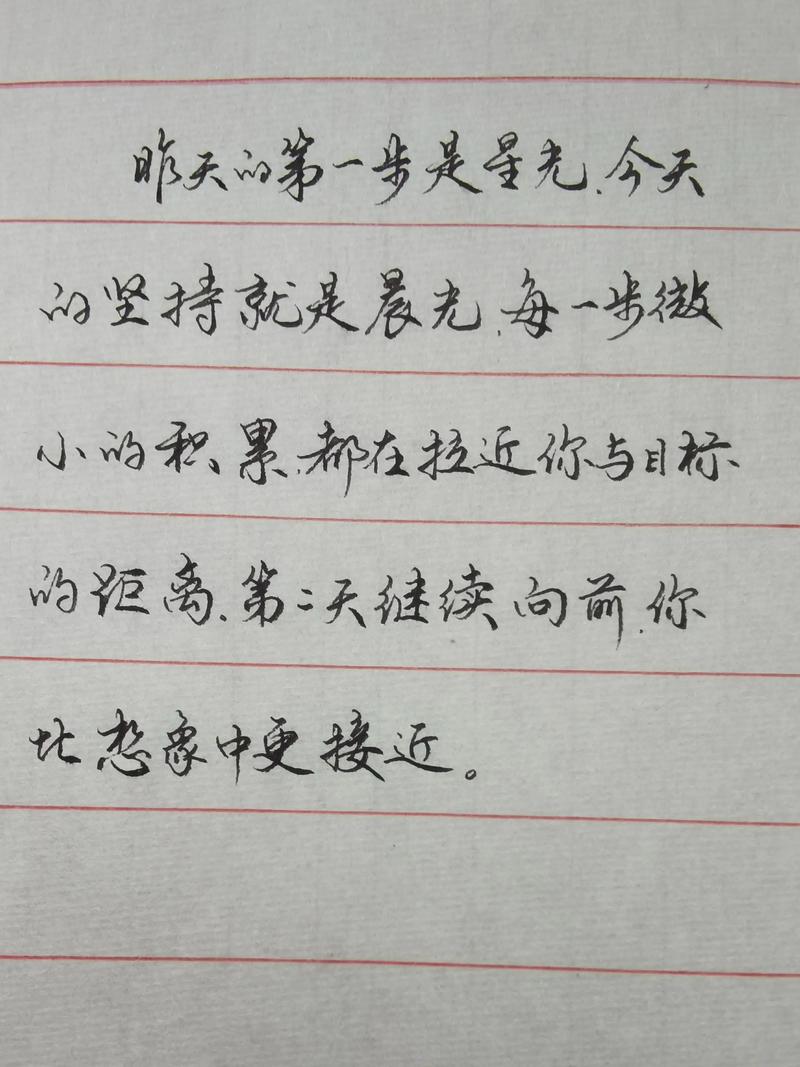 昨天的第一步是星光、今天
的坚持就是晨光、每一步微
小的积累、都在拉近你与目标
的距离、第二天继续向前、你
比想象中更接近。